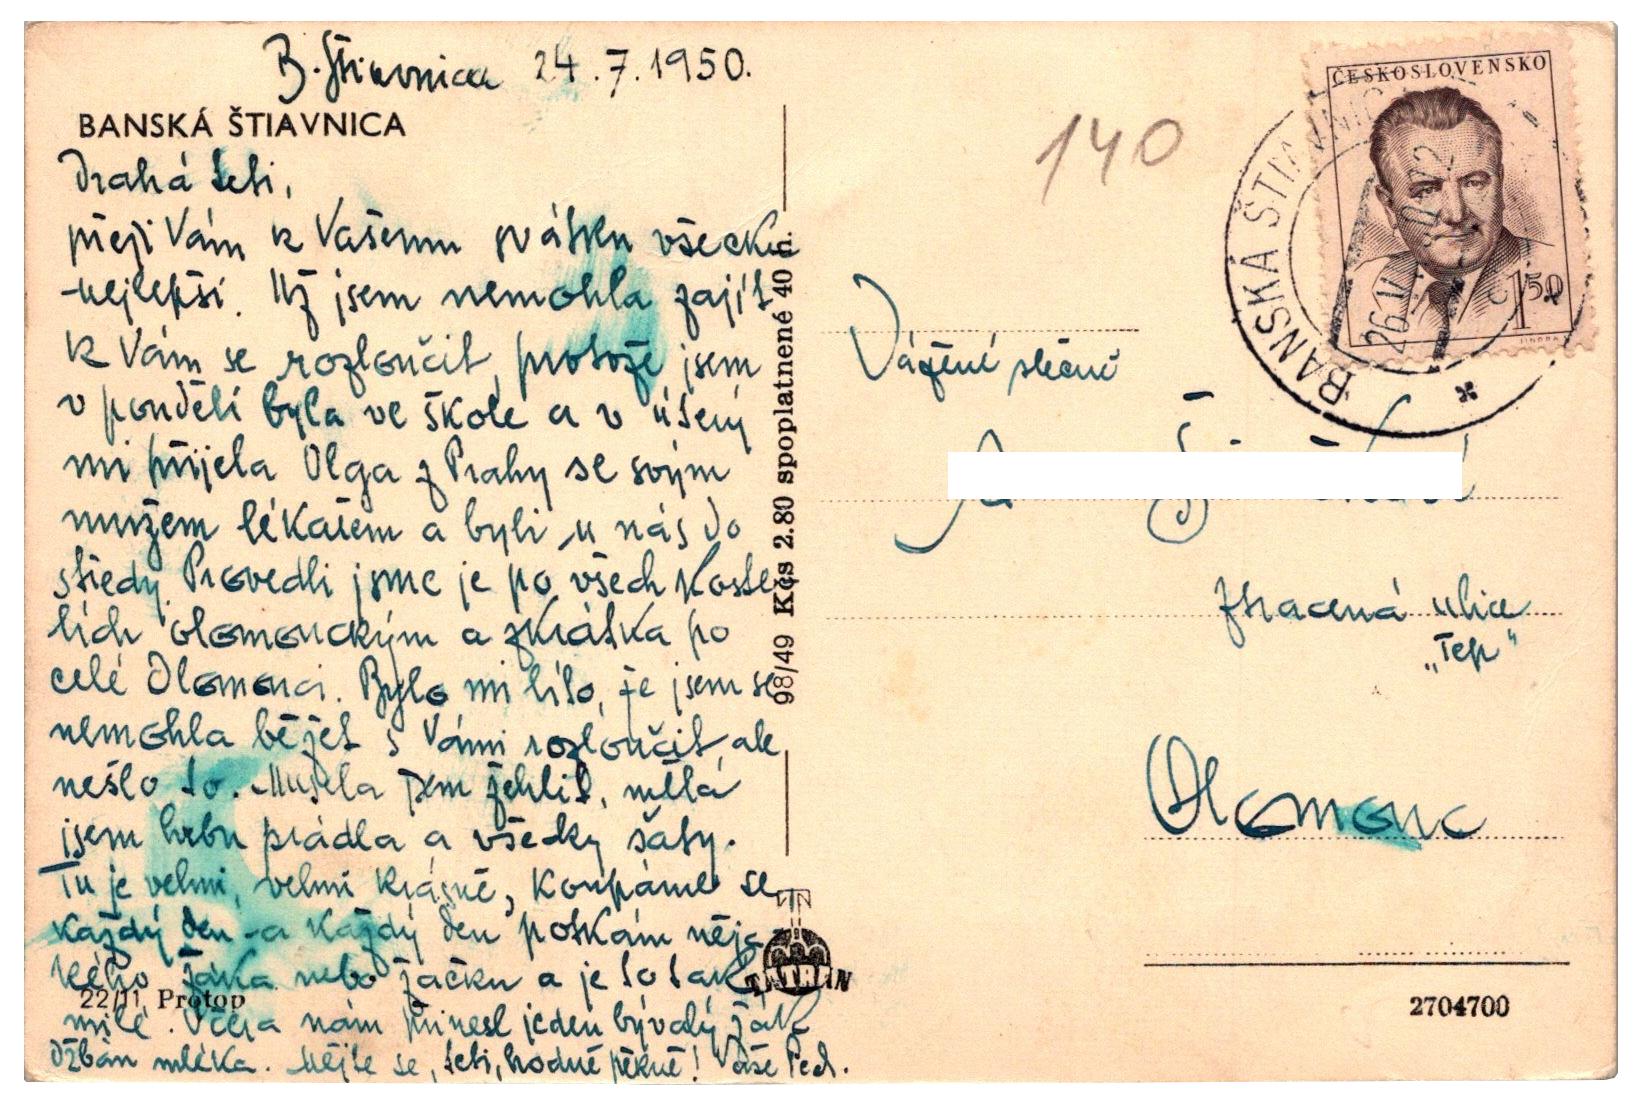 B. Štiavnica 24.7.1950.
BANSKÁ ŠTIAVNICA
Drahá teti,
přeji Vám k Vašemu svátku všecko
nejlepší. Už jsem nemohla zajít
k Vám se rozloučit, protože jsem
v pondělí byla ve škole a v úterý
mi přijela Olga z Prahy se svým
mužem lékařem a byli u nás do
středy. Provedli jsme je po všech koste-
lích olomouckým a zkrátka po
celé Olomouci. Bylo mi líto, že jsem se
nemohla běžet s Vámi rozloučit, ale
nešlo to. Musela jsem žehlit, měla
jsem hrbu prádla a všecky šaty.
Tu je velmi, velmi krásně, koupáme se
každý den a každý den potkám něja-
kého žáka nebo žačku a je to tak
milé. Včera nám přinesl jeden bývalý žák
džbán mléka. Mějte se, teti, hodně pěkně! Vaše Ped.
22/11 Protop
98/49 Kčs 2.80 spoplatnené 40 h.
TATRAN
140
ČESKOSLOVENSKO
1 50
BANSKÁ ŠTIAVNICA
Vážená slečně
Ztracená ulice
„Tep“
Olomouc
2704700